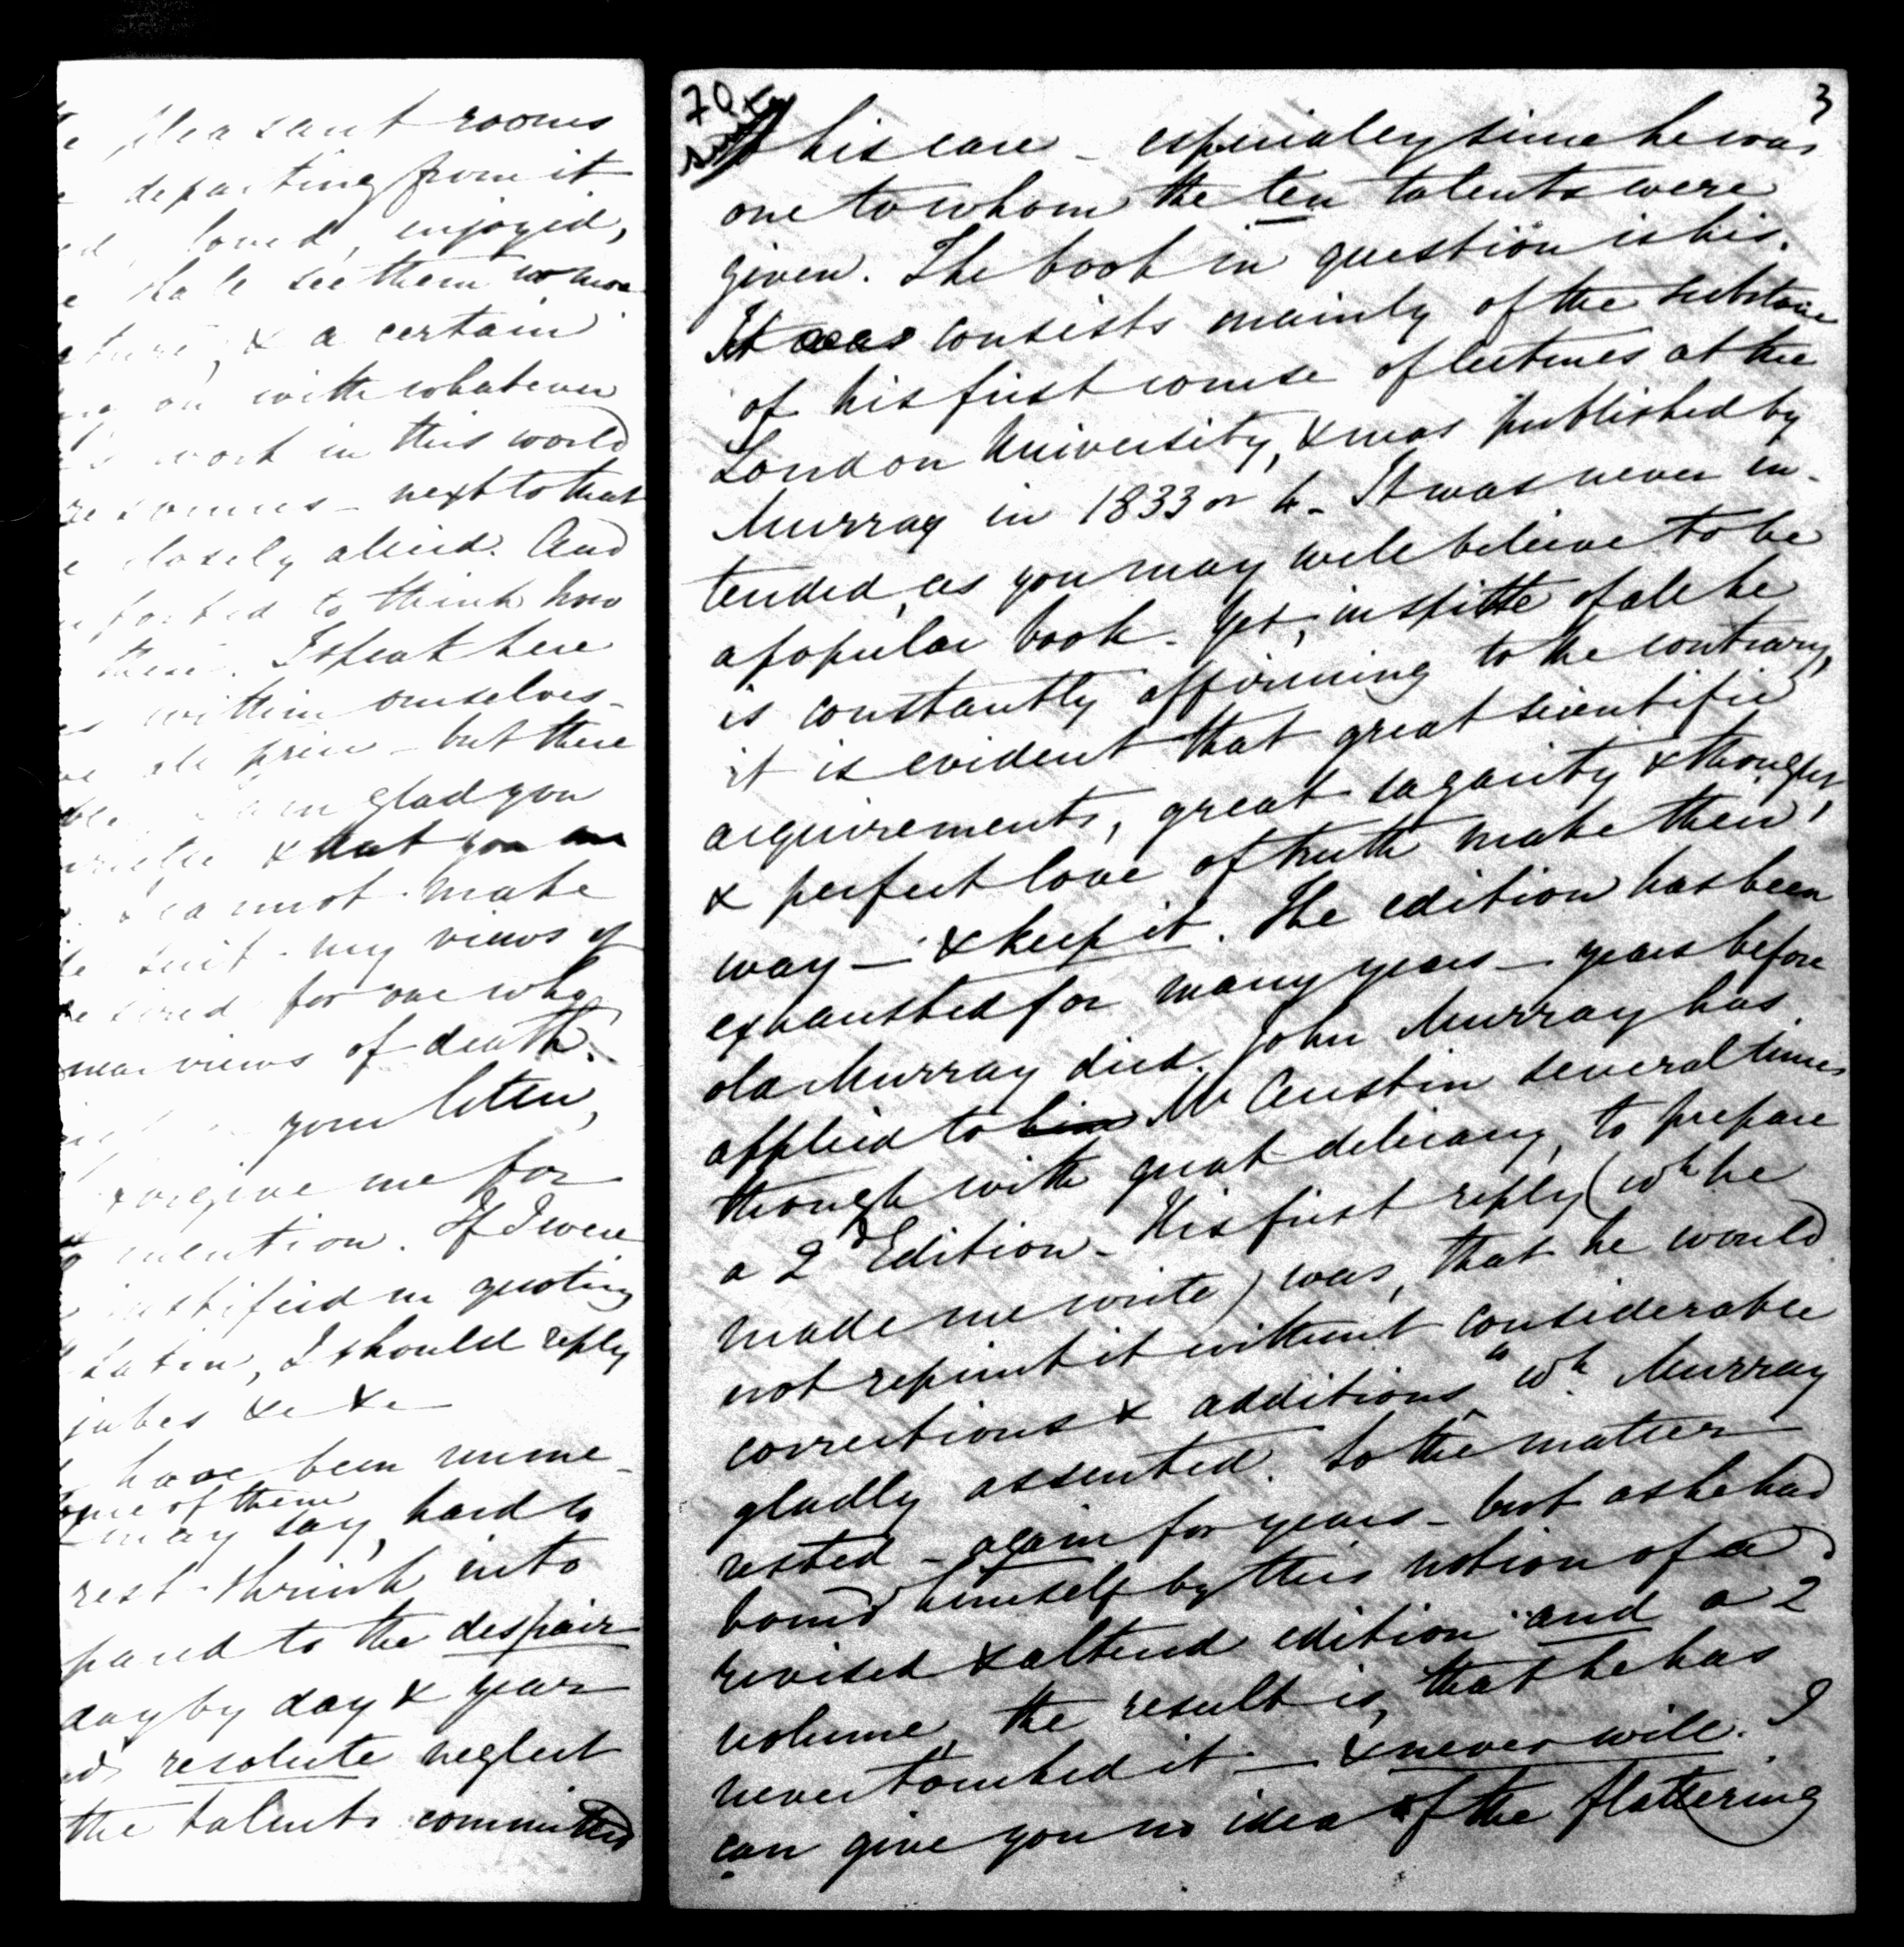 pleasant rooms
departing from it
loved, enjoyed,
shall see them no more
& a certain
on with whatever
work in this world
next to that
closely allied. And
to think how
there. I speak here
within ourselves -
but there
glad you
& that you are
cannot make
suit my views of
for one who
near views of death.
your letter,
forgive me for
mention. If I were
justified in quoting
Latin, I should reply
jubes &c &c
have been nume-
some of them
may say, hard to
rest shrink into
pared to the despair
day by day & year
resolute neglect
the talents committed
70
3
to his care - especially since he was
one to whom the ten talents were
given. The book in question is his.
It was consists mainly of the substance
of his first course of lectures at the
London University, & was published by
Murray in 1833 or 4 - It was never in-
tended, as you may well believe to be
a popular book - Yet, in spitte of all he
is constantly affirming to the contrary,
it is evident that great scientific
acquirements, great sagacity & thought,
& perfect love of truth make their
way - & keep it. The edition has been
exhausted for many years - years before
old Murray died. John Murray has
applied to him Mr Austin several times
though with great delicacy, to prepare
a 2d Edition - His first reply (wh he
made me write) was, that he would
not reprint it without "considerable
corrections & additions" wh Murray
gladly assented. So the matter
rested - again for years - but as he had
bound himself by this notion of a
revised & altered edition and a 2
volume, the result is, that he has
never touched it - & never will. I
can give you no idea of the flattering